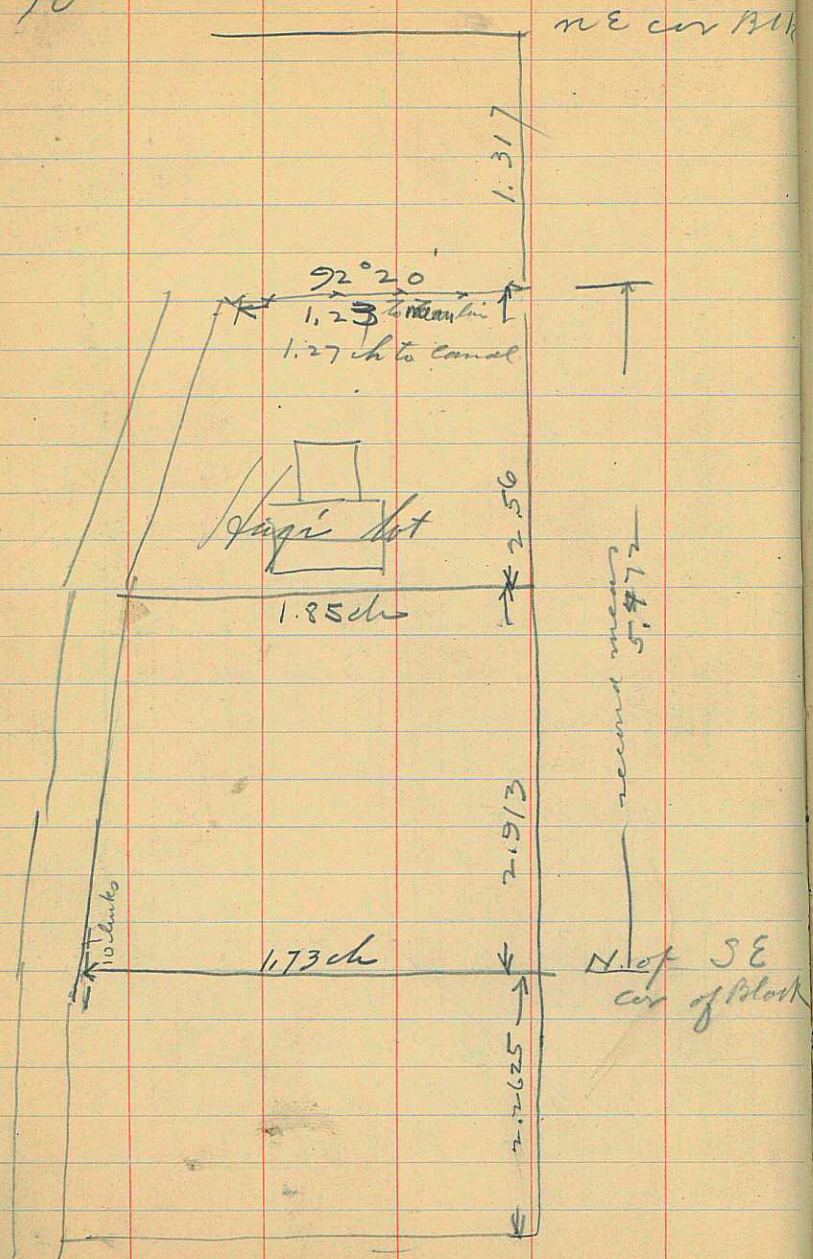 NE cor Blk
1.317
92°20'
1.23 to mean lin
1.27 ch to canal
2.56
lot
1.85 ch
second meas
5.472
2.913
10 links
1.73 ch
N. of SE
cor of Block
2.2625